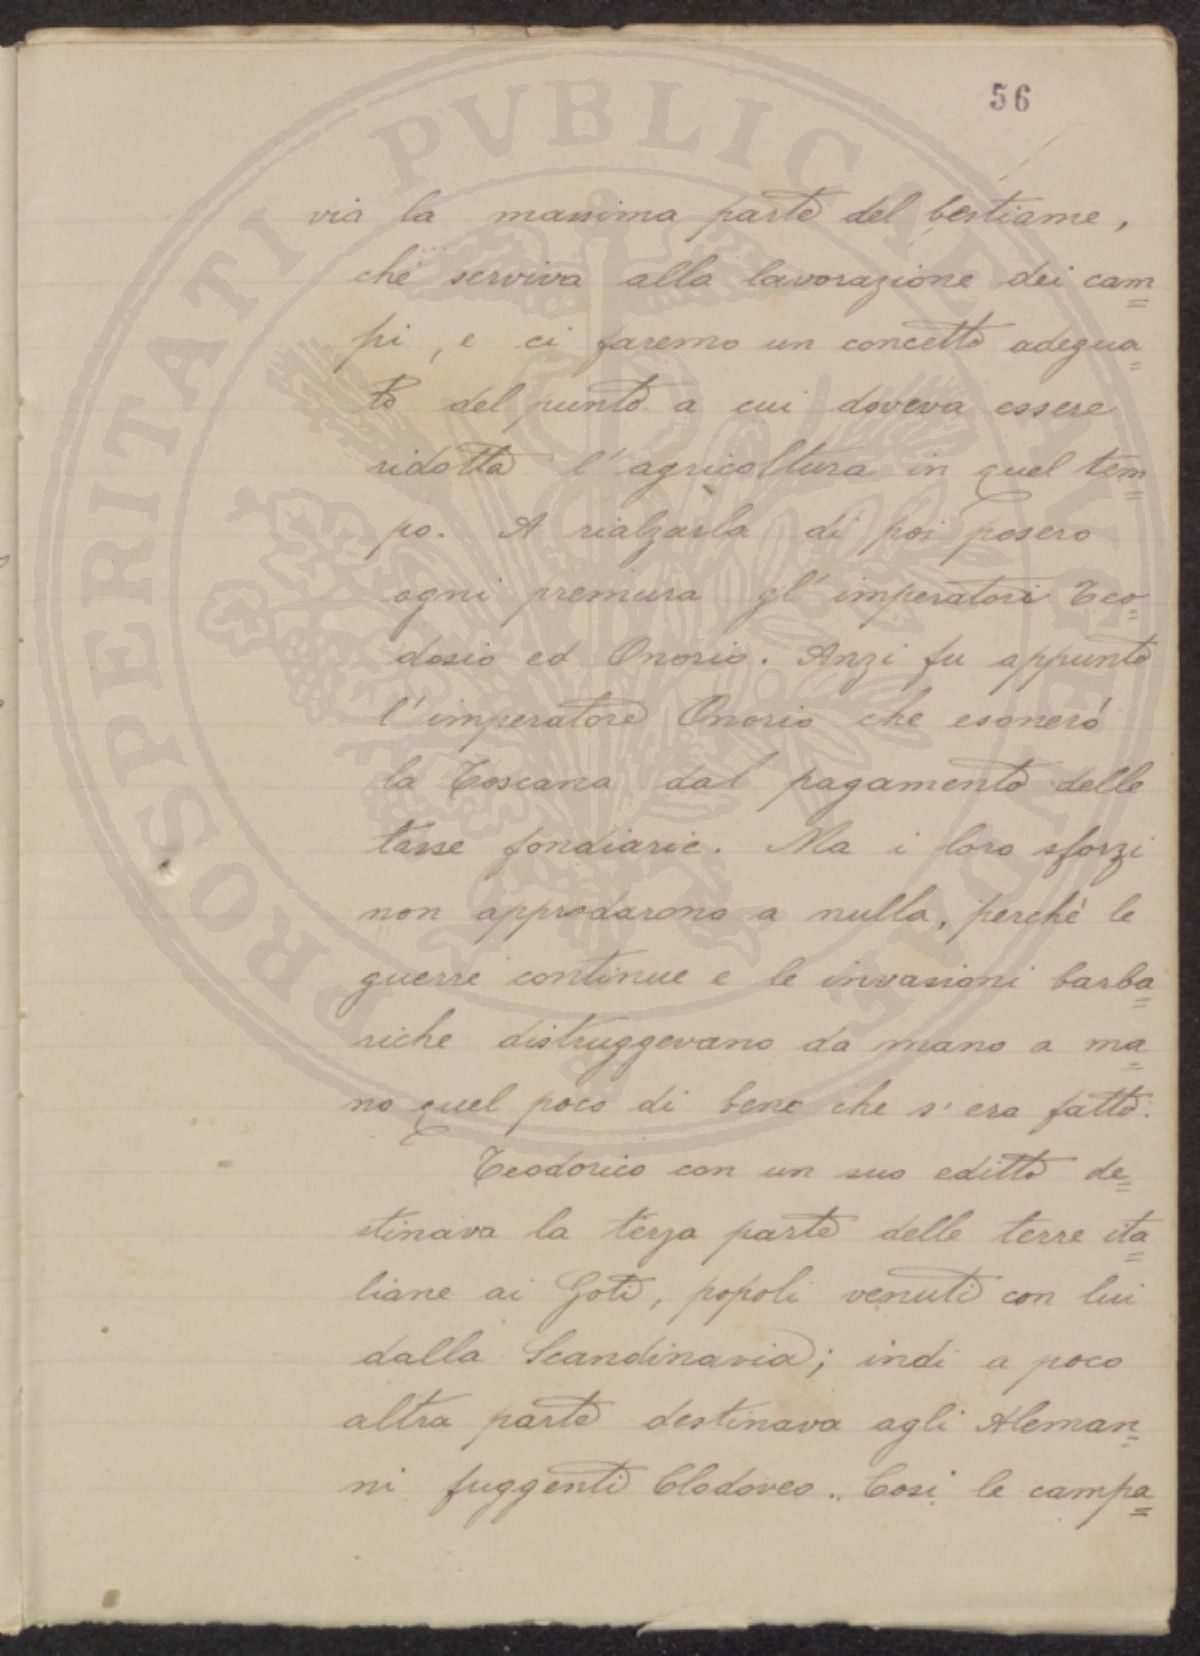 56
via la massima parte del bestiame,
che serviva alla lavorazione dei cam=
pi, e ci faremo un concetto adegua=
to del punto a cui doveva essere
ridotta l'agricoltura in quel tem=
po. A rialzarla di poi posero
ogni premura gl'imperatori Teo=
dosio ed Onorio. Anzi fu appunto
l'imperatore Onorio che esonerò
la Toscana dal pagamento delle
tasse fondiarie. Ma i loro sforzi
non approdarono a nulla, perchè le
guerre continue e le invasioni barba=
riche distruggevano da mano a ma=
no quel poco di bene che s'era fatto.
Teodorico con un suo editto de=
stinava la terza parte delle terre ita=
liane ai Goti, popoli venuti con lui
dalla Scandinavia; indi a poco
altra parte destinava agli Aleman=
ni fuggenti Clodoveo. Così le campa=
PROSPERITATI PVBLICAE AVGENDAE